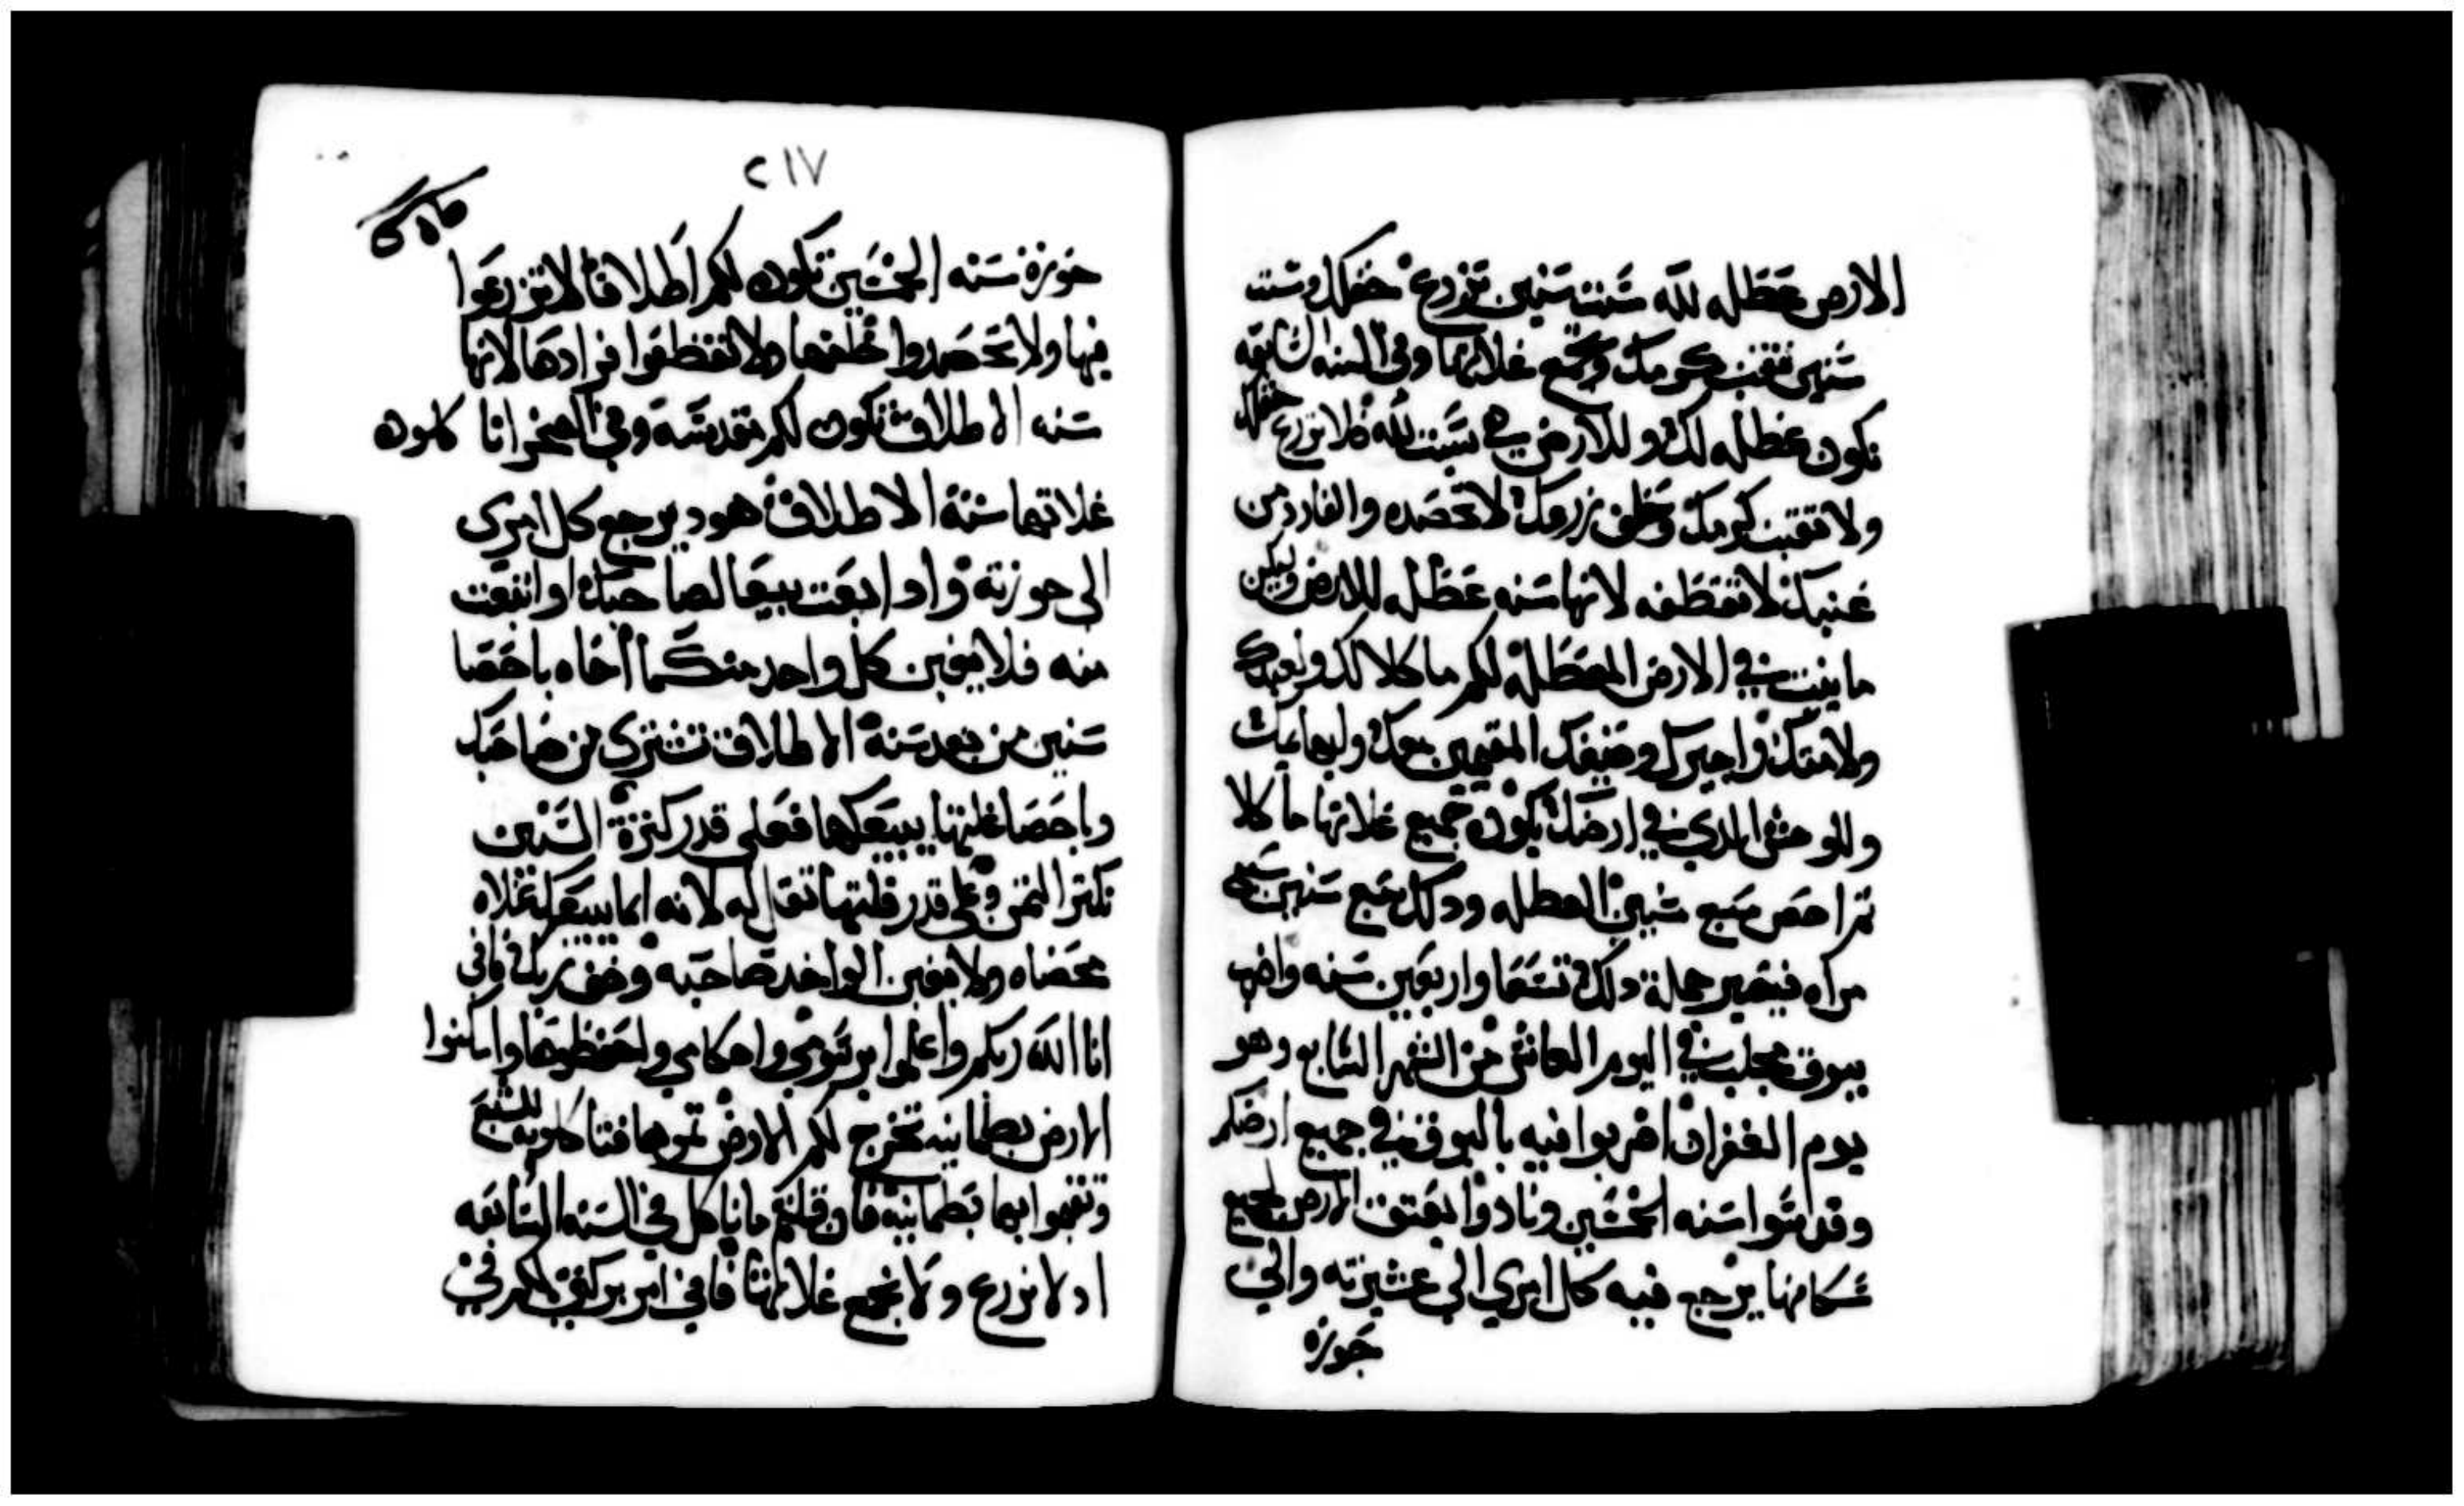 الارض عطله لله ست سنين تزرع حقلك وست
سنين تقنب كرمك وتجمع غلاتها وفي السنه السابعه
تكون عطله لك وللارض هي سبت لله فلا تزرع حقلك
ولا تقنب كرمك وخلف زرعك لا تحصده والفارد من
عنبك لا تقطفه لانها سنه عطله للارض وليكن
ما ينبت في الارض المعطله لكم ماكلا لك ولعبدك
ولامتك واجيرك وضيفك المقيمين معك ولبهايمك
وللوحش الدي في ارضك يكون جميع غلاتها ماكلا
تم احص سبع سنين العطله ودلك سبع سنين سبع
مراه فيصير جملة دلك تسعا واربعين سنه واضرب
ببوق مجلب في اليوم العاشر من الشهر السابع وهو
يوم الغفران اضربوا فيه بالبوق في جميع ارضكم
وقدسوا سنه الخمسين ونادوا بعتق الارض لجميع
سكانها يرجع فيه كل امري الي عشيرته والي
حوزة
٢١٧
حوزة سنه الخمسين تكون لكم اطلاقا لا تزرعوا
فيها ولا تحصدوا خلفها ولا تقطفوا فرادها لانها
سنه الاطلاق تكون لكم مقدسه وفي الصحرا تاكلون
غلاتهما سنة الاطلاق هود يرجع كل امري
الي حوزته وادا ابعت بيعا لصاحبك او ابتعت
منه فلا يغبن كل واحد منكما اخاه باحصا
سنين من بعد سنة الاطلاق تشتري من صاحبك
وباحصا غلتها يبيعكها فعلي قدر كترة السنين
تكتر التمن وعلي قدر قلتها تقاله لانه انما يبيعك غلاه
محصاه ولا يغبن الواحد صاحبه وخف ربك فاني
انا الله ربكم واعملوا برسومي واحكامي ولتحفظوها واسكنوا
الارض بطمانينه تخرج لكم الارض تمرها فتاكلونه للشبع
وتقيموا بها بطمانينه فان قلتم ما ناكل في السنه السابعه
اد لا نزرع ولا نجمع غلاتنا فاني امر بركتي لكم في